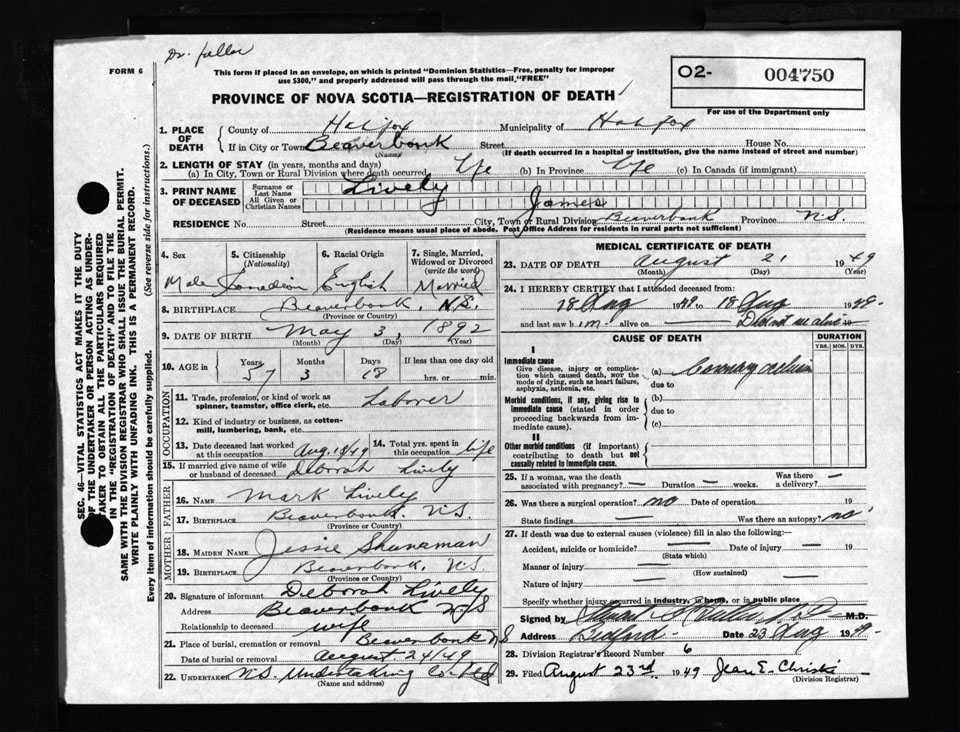 Dr. Fuller
FORM 6
This form if placed in an envelope, on which is printed "Dominion Statistics—Free, penalty for improper
use $300," and properly addressed will pass through the mail "FREE"
PROVINCE OF NOVA SCOTIA—REGISTRATION OF DEATH
02- 004750
For use of the Department only
SEC. 46—VITAL STATISTICS ACT MAKES IT THE DUTY
OF THE UNDERTAKER OR PERSON ACTING AS UNDER-
TAKER TO OBTAIN ALL THE PARTICULARS REQUIRED
IN THE "REGISTRATION OF DEATH" AND TO FILE THE
SAME WITH THE DIVISION REGISTRAR WHO SHALL ISSUE THE BURIAL PERMIT.
WRITE PLAINLY WITH UNFADING INK. THIS IS A PERMANENT RECORD.
Every item of information should be carefully supplied. (See reverse side for instructions.)
1. PLACE OF DEATH
County of Halifax Municipality of Halifax
If in City or Town Beaverbank Street House No.
(Name) (If death occurred in a hospital or institution, give the name instead of street and number)
2. LENGTH OF STAY (in years, months and days)
(a) In City, Town or Rural Division where death occurred life (b) In Province life (c) In Canada (if immigrant)
3. PRINT NAME OF DECEASED
Surname or Last Name Lively
All Given or Christian Names James
RESIDENCE No. Street City, Town or Rural Division Beaverbank Province N.S.
(Residence means usual place of abode. Post Office Address for residents in rural parts not sufficient)
4. Sex 5. Citizenship (Nationality) 6. Racial Origin 7. Single, Married, Widowed or Divorced (write the word)
Male Canadian English Married
8. BIRTHPLACE Beaverbank, N.S.
(Province or Country)
9. DATE OF BIRTH May 3, 1892
(Month) (Day) (Year)
10. AGE in Years Months Days If less than one day old
57 3 18 hrs. or min.
OCCUPATION
11. Trade, profession, or kind of work as
spinner, teamster, office clerk, etc. Laborer
12. Kind of industry or business, as cotton-
mill, lumbering, bank, etc.
13. Date deceased last worked at this occupation Aug 18/49 14. Total yrs. spent in this occupation life
15. If married give name of wife or husband of deceased Deborah Lively
FATHER
16. NAME Mark Lively
17. BIRTHPLACE Beaverbank, N.S.
(Province or Country)
MOTHER
18. MAIDEN NAME Jessie
19. BIRTHPLACE Beaverbank, N.S.
(Province or Country)
20. Signature of informant Deborah Lively
Address Beaverbank N/S
Relationship to deceased wife
21. Place of burial, cremation or removal Beaverbank NS
Date of burial or removal August 24/49
22. UNDERTAKER N.S. Undertaking Co. Ltd
(Name and address)
MEDICAL CERTIFICATE OF DEATH
23. DATE OF DEATH August 21 1949
(Month) (Day) (Year)
24. I HEREBY CERTIFY that I attended deceased from:
18 Aug 1949 to 18 Aug 1949
and last saw him alive on Did not see alive 19
CAUSE OF DEATH DURATION
YRS. MOS. DYS.
I
Immediate cause
Give disease, injury or complica-
tion which caused death, NOT the
mode of dying, such as heart failure,
asphyxia, asthenia, etc.
(a) Coronary
due to
Morbid conditions, if any, giving rise to
immediate cause (stated in order
proceeding backwards from im-
mediate cause).
(b)
due to
(c)
II
Other morbid conditions (if important)
contributing to death but not
causally related to immediate cause.
25. If a woman, was the death associated with pregnancy? — Duration — weeks. Was there a delivery? —
26. Was there a surgical operation? no Date of operation 19
State findings — Was there an autopsy? no
27. If death was due to external causes (violence) fill in also the following:
Accident, suicide or homicide? — Date of injury — 19
(State which)
Manner of injury —
(How sustained)
Nature of injury —
Specify whether injury occurred in industry, in home, or in public place
Signed by M.D.
Address Bedford Date 23 Aug 1949
28. Division Registrar's Record Number 6
29. Filed August 23rd 1949 Jean E. Christie
(Division Registrar)